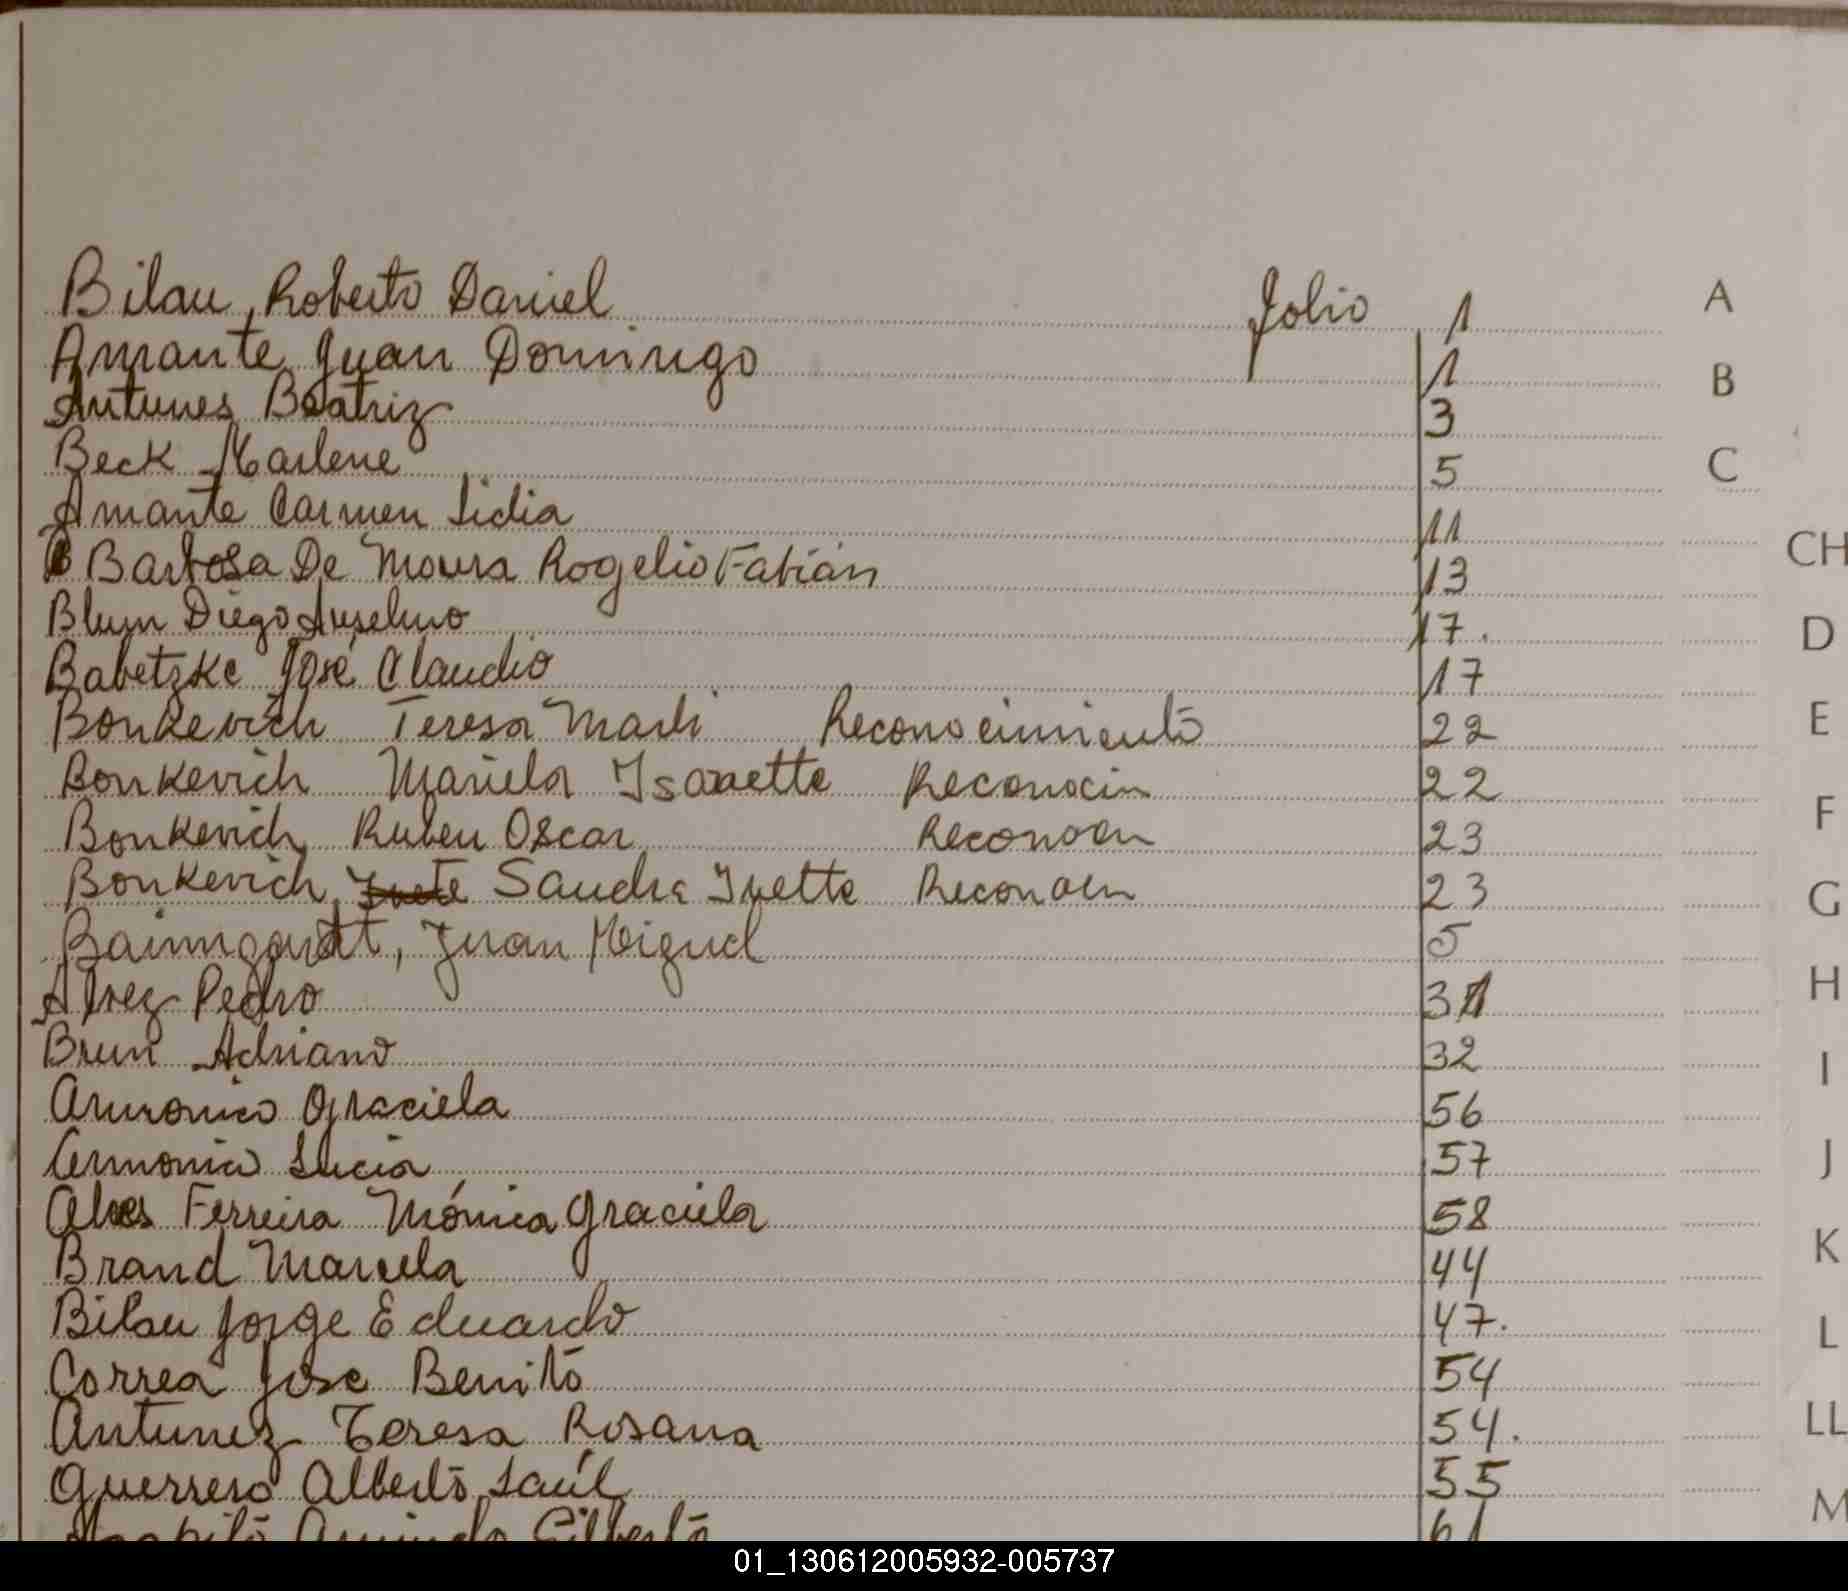 Bilau, Roberto Daniel folio 1 A
Amante Juan Domingo 1 B
Antunes Beatriz 3
Beck Marlene 5 C
Amante Carmen Lidia 11
Barbosa De Moura Rogelio Fabián 13 CH
Blum Diego Anselmo 17. D
Babetzke José Claudio 17
Bonkevich Teresa Marli Reconocimiento 22 E
Bonkevich Mariela Reconocim 22
Bonkevich Ruben Oscar Reconocim 23 F
Bonkevich Sandra Ivette Reconocim 23 G
Baimgardt, Juan Miguel 5
Alvez Pedro 31 H
Brun Adriano 32
Armonico Graciela 56 I
Armonico Lucia 57 J
Alves Ferreira Mónica Graciela 58
Brand Marcela 44 K
Bilau Jorge Eduardo 47. L
Correa Jose Benito 54
Antunez Teresa Rosana 54. LL
Guerrero Alberto Saúl 55
Gilberto 61 M
01_130612005932-005737